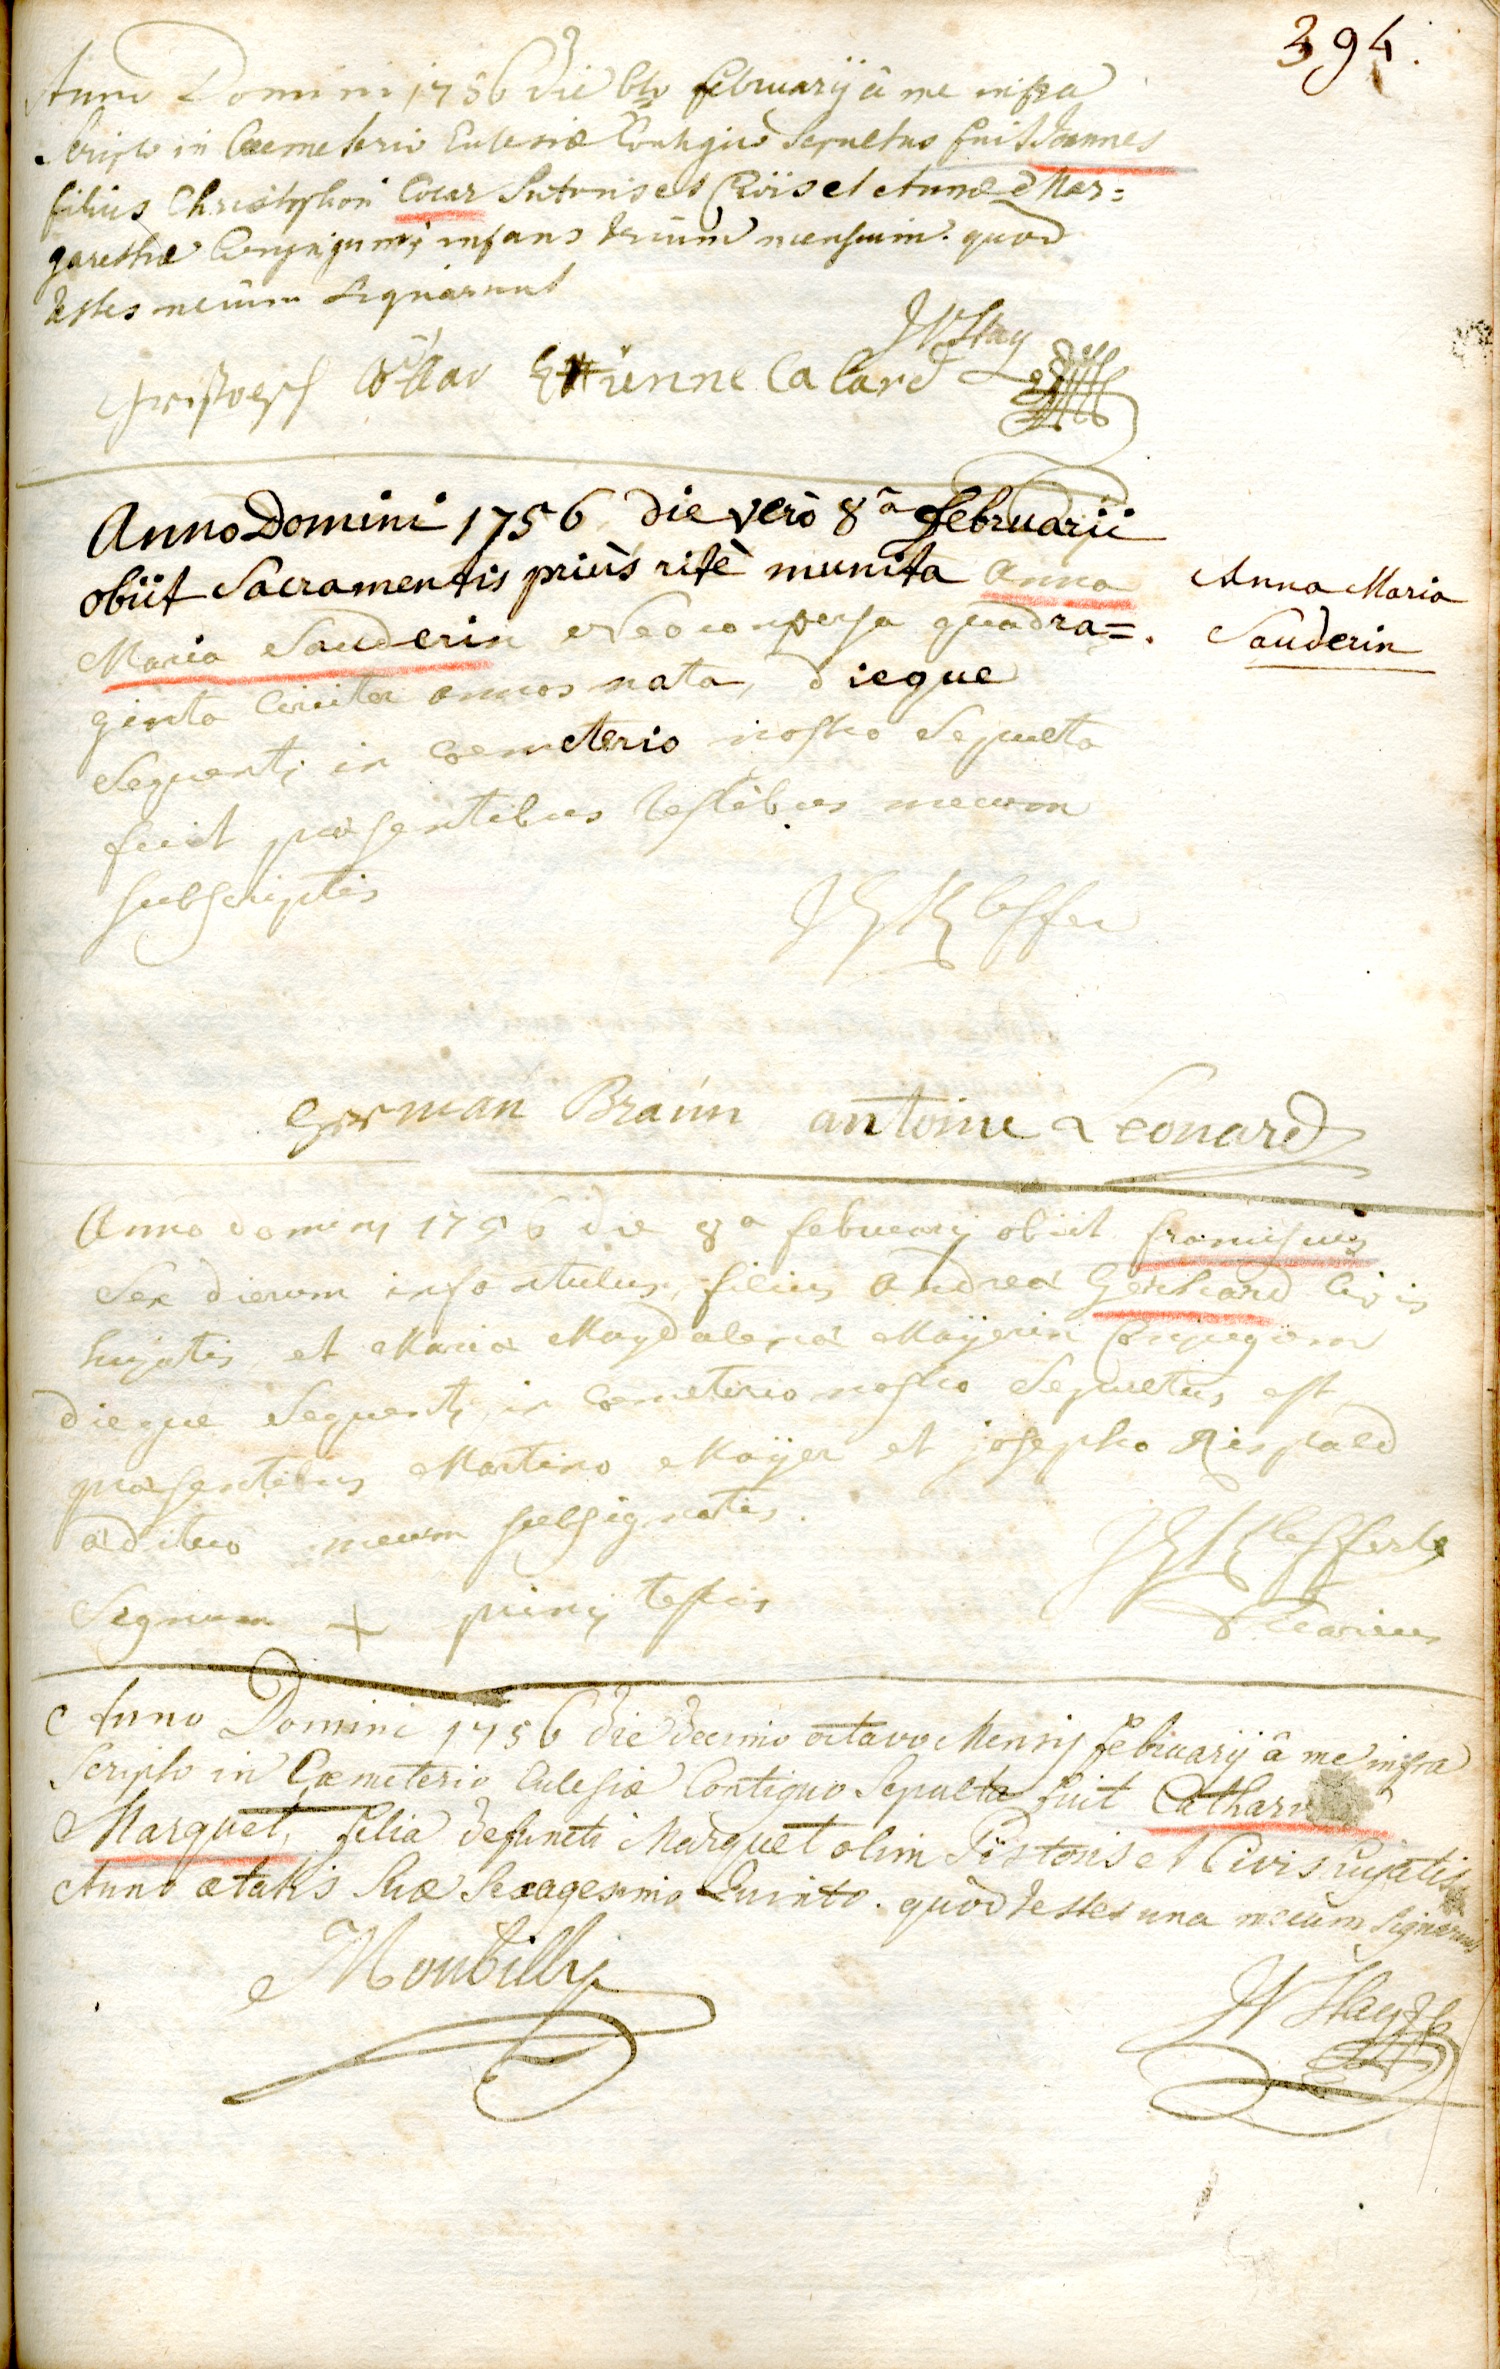 394.
Anno Domini 1756 die 6to februarij â me infra
Scripto in Coemeterio Eclesiæ Contiguo Sepultus fuit Joannes
filius Christophori Colar Sutoris et Civis et Annæ Mar=
garethæ Conjugum, infans trium mensium. quod
testes mecum signarunt
JW Stay
Etienne Calard
Anno Domini 1756 die verò 8â februarii
obiit Sacramentis priùs ritè munita Anna
Maria Sauderin neoconversa quadra=
ginta Circiter annos nata, dieque
Sequenti in coemeterio nostro Sepulta
fuit præsentibus testibus mecum
subscriptis
Anna Maria
Sauderin
German Braun antoine Leonard
Anno domini 1756 die 8a februarij obiit franciscus
Sex dierum infantulus, filius Andreæ Gerhard Civis
hujatis, et Mariæ Magdalenæ Mayerin Conjugum
dieque Sequenti in Coemeterio nostro Sepultus est
præsentibus Martino Mayer et josepho Rispald
ædituo mecum subsignatis.
Signum + primi testis
Vicarius
Anno Domini 1756 die decimo octavo Mensis februarij â me infra
Scripto in Coemeterio Eclesiæ Contiguo Sepulta fuit Cathari
Marquet, filia defuncti Marquet olim Pistoris et Civis hujatis
Anno ætatis suæ Sexagesimo Quinto. quòd testes una mecum signarunt
Moubilly
JW Stay